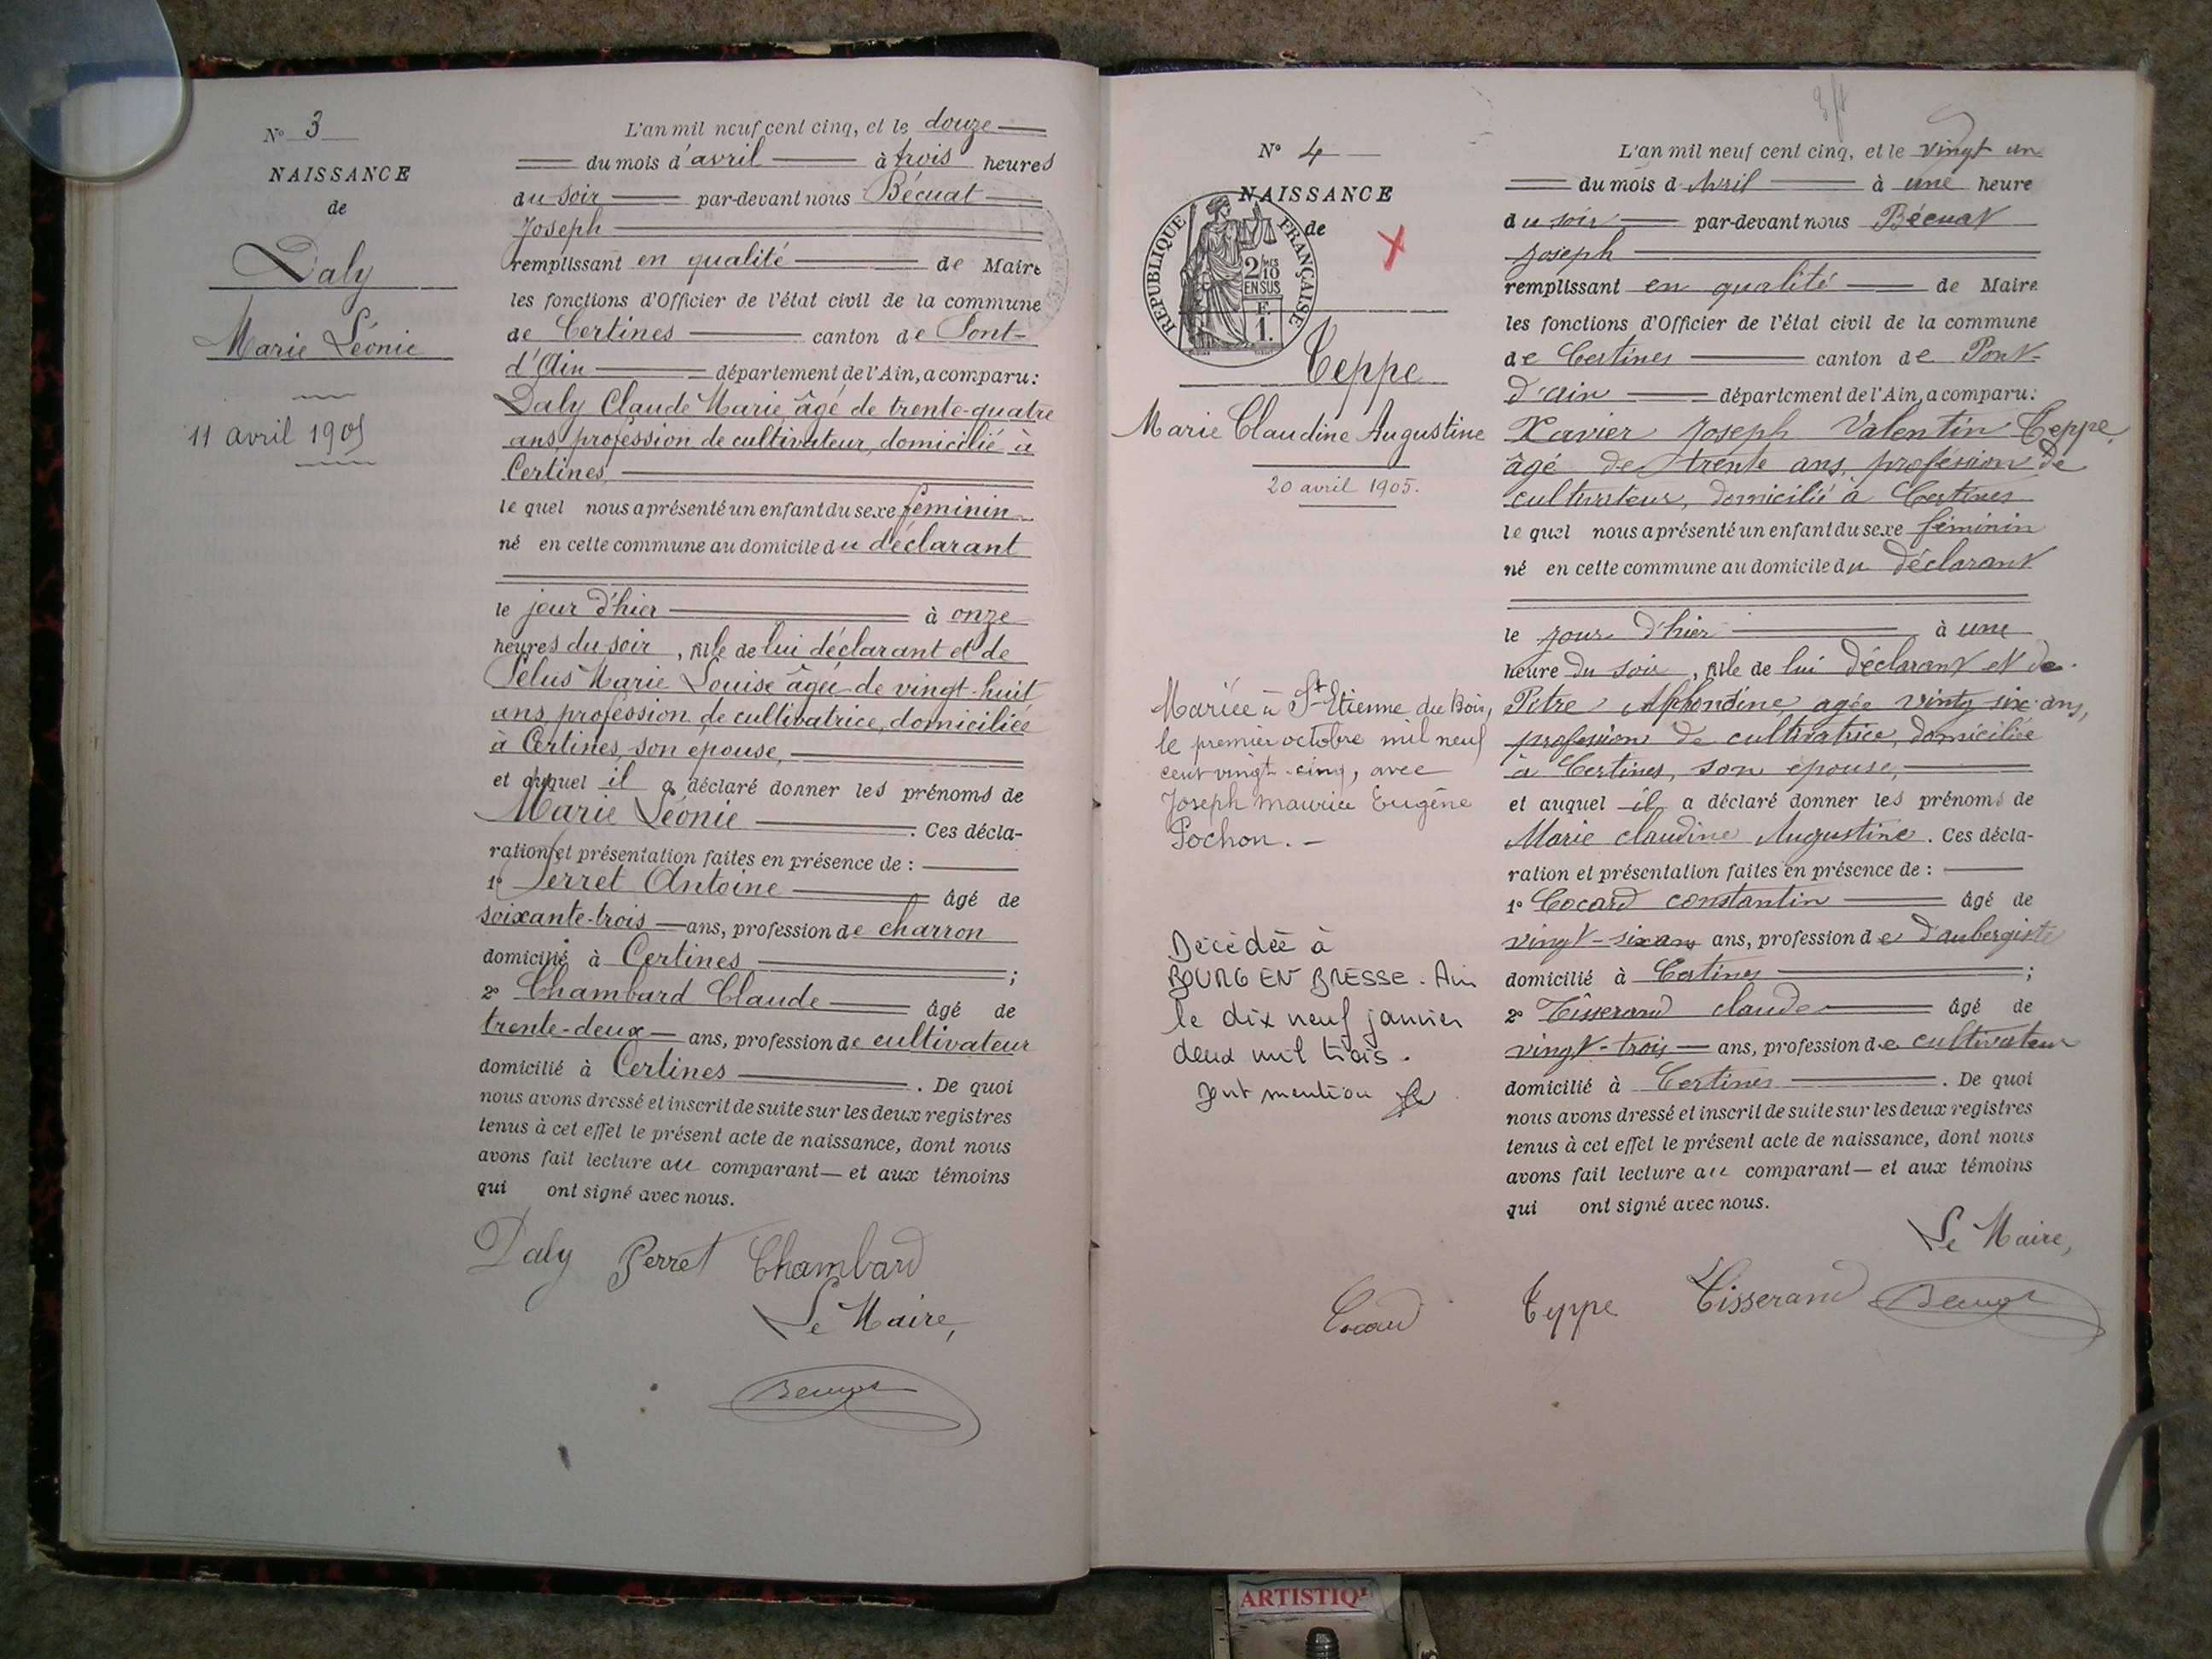 N° 3
NAISSANCE
de
Daly
Marie Léonie
11 avril 1905
L'an mil neuf cent cinq, et le douze
du mois d'avril à trois heures
du soir par-devant nous Bécuat
Joseph
remplissant en qualité de Maire
les fonctions d'Officier de l'état civil de la commune
de Certines canton de Pont-
d'Ain département de l'Ain, a comparu:
Daly Claude Marie, âgé de trente-quatre
ans, profession de cultivateur, domicilié à
Certines,
le quel nous a présenté un enfant du sexe féminin
né en cette commune au domicile du déclarant
le jour d'hier à onze
heures du soir, fille de lui déclarant et de
Pelus Marie Louise âgée de vingt-huit
ans, profession de cultivatrice, domiciliée
à Certines, son épouse,
et auquel il a déclaré donner les prénoms de
Marie Léonie. Ces décla-
ration et présentation faites en présence de :
1° Perret Antoine âgé de
soixante-trois ans, profession de charron
domicilié à Certines ;
2° Chambard Claude âgé de
trente-deux ans, profession de cultivateur
domicilié à Certines. De quoi
nous avons dressé et inscrit de suite sur les deux registres
tenus à cet effet le présent acte de naissance, dont nous
avons fait lecture au comparant— et aux témoins
qui ont signé avec nous.
Daly Perret Chambard
Le Maire,
N° 4
NAISSANCE
de
REPUBLIQUE FRANÇAISE
2/10 MES
EN SUS
F.
1.
Teppe
Marie Claudine Augustine
20 avril 1905.
Mariée à St Etienne du Bois,
le premier octobre mil neuf
cent vingt-cinq, avec
Joseph Maurice Eugène
Pochon. –
Décédée à
BOURG EN BRESSE. Ain
le dix neuf janvier
deux mil trois.
dont mention
L'an mil neuf cent cinq, et le vingt un
du mois d'Avril à une heure
du soir par-devant nous Bécuat
Joseph
remplissant en qualité de Maire
les fonctions d'Officier de l'état civil de la commune
de Certines canton de Pont-
d'ain département de l'Ain, a comparu:
Xavier Joseph Valentin Teppe,
âgé de trente ans, profession de
cultivateur, domicilié à Certines
le quel nous a présenté un enfant du sexe féminin
né en cette commune au domicile du déclarant
le jour d'hier à une
heure du soir, fille de lui déclarant et de
Pitre Alphondine agée vingt six ans,
profession de cultivatrice, domiciliée
à Certines, son épouse,
et auquel il a déclaré donner les prénoms de
Marie claudine Augustine. Ces décla-
ration et présentation faites en présence de :
1° Cocard constantin âgé de
vingt-six ans ans, profession de d'aubergiste
domicilié à Certines ;
2° Tisserand claude âgé de
vingt-trois ans, profession de cultivateur
domicilié à Certines. De quoi
nous avons dressé et inscrit de suite sur les deux registres
tenus à cet effet le présent acte de naissance, dont nous
avons fait lecture au comparant— et aux témoins
qui ont signé avec nous.
Le Maire,
Cocard Teppe Tisserand
ARTISTIQ